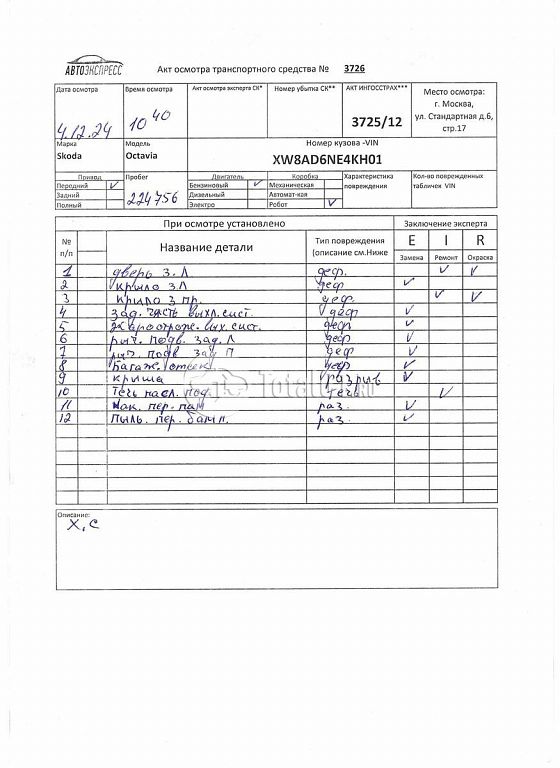 АВТОЭКСПРЕСС
Акт осмотра транспортного средства № 3726
Дата осмотра Время осмотра Акт осмотра эксперта СК* Номер убытка СК** АКТ ИНГОССТРАХ*** Место осмотра:
г. Москва,
4.12.24 10 40 3725/12 ул. Стандартная д.6,
стр.17
Марка Модель Номер кузова -VIN
Skoda Octavia XW8AD6NE4KH01
Привод Пробег Двигатель Коробка Характеристика Кол-во поврежденных
Передний ✓ 224756 Бензиновый ✓ Механическая повреждения табличек VIN
Задний Дизельный Автомат-кая
Полный Электро Робот ✓
При осмотре установлено Заключение эксперта
№ Название детали Тип повреждения E I R
п/п (описание см.Ниже Замена Ремонт Окраска
1 дверь З.Л деф. ✓ ✓
2 крыло З.Л деф ✓
3 крыло З пр. деф. ✓ ✓
4 зад. часть выхл. сист. деф ✓
5 вых. сист. деф. ✓
6 рыч. подв. зад. Л деф ✓
7 рыч. подв зад П деф ✓
8 багаж. отсек деф ✓
9 крыша разрыв ✓
10 течь масл. под. течь ✓
11 нак. пер. раз. ✓
12 пыль. пер. бамп. раз. ✓
Total
Описание:
Х, С